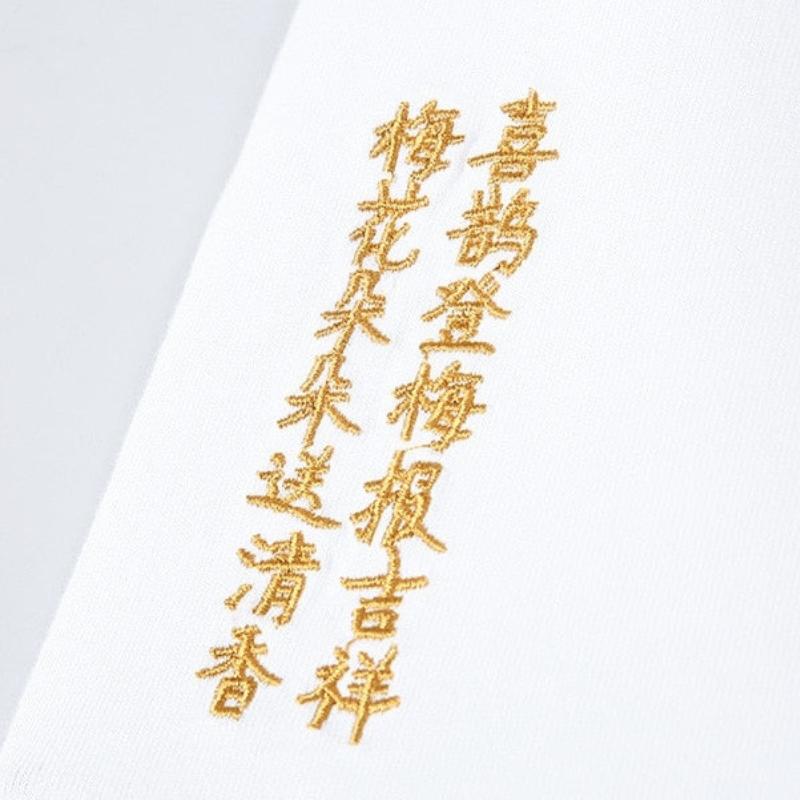 喜鹊登梅报吉祥
梅花朵朵送清香